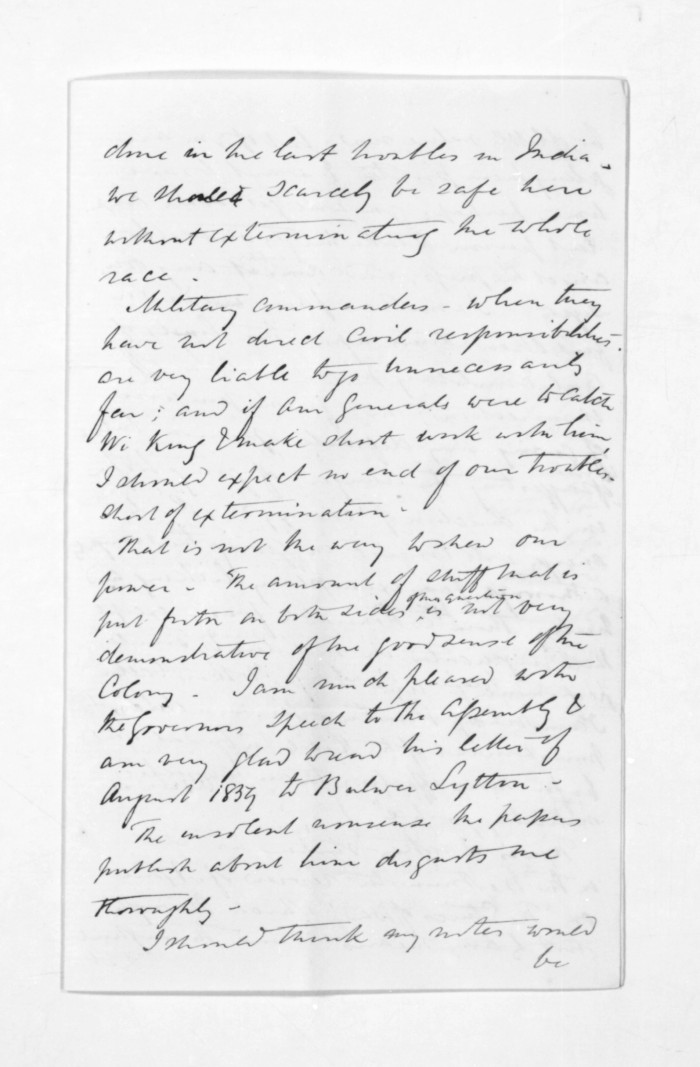 done in the last troubles in India -
we should scarcely be safe here
without exterminating the whole
race -
Military commanders - when they
have not direct civil responsibilities -
are very liable to go unnecessarily
far; and if our generals were to catch
Wi King & make short work with him,
I should expect no end of our troubles
short of extermination -
That is not the way to shew our
power - The amount of stuff that is
put forth on both sides of the question is not very
demonstrative of the good sense of the
Colony - I am much pleased with
the Governors speech to the Assembly &
am very glad to read his letter of
August 1859 to Bulwer Lytton -
The insolent nonsense the papers
publish about him disgusts me
thoroughly -
I should think my notes would
be